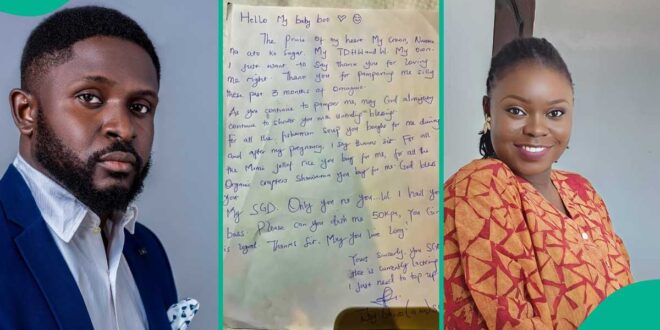 Hello My baby boo
The Prince of my heart My Crown, Nwa
na ato ka sugar. My TDHH and W. My own.
I just want to say thank you for loving
me right. Thank you for pampering me silly
these past 3 months of Omugwo.
As you continue to pamper me, may God almighty
continue to shower you with blessings
for all the fisherman soup you bought for me during
and after my pregnancy, I say thanks Sir. For all
the Mimi Jollof rice you buy for me, for all the
Organic crappers Shawarma you buy for me God bless
you.
My SGD. Only you no you. I hail you
boss. Please can you dash me 50kpa, You
is legal. Thanks Sir. May you live long.
Yours sincerely, you
that is currently lactating
I just need to top up